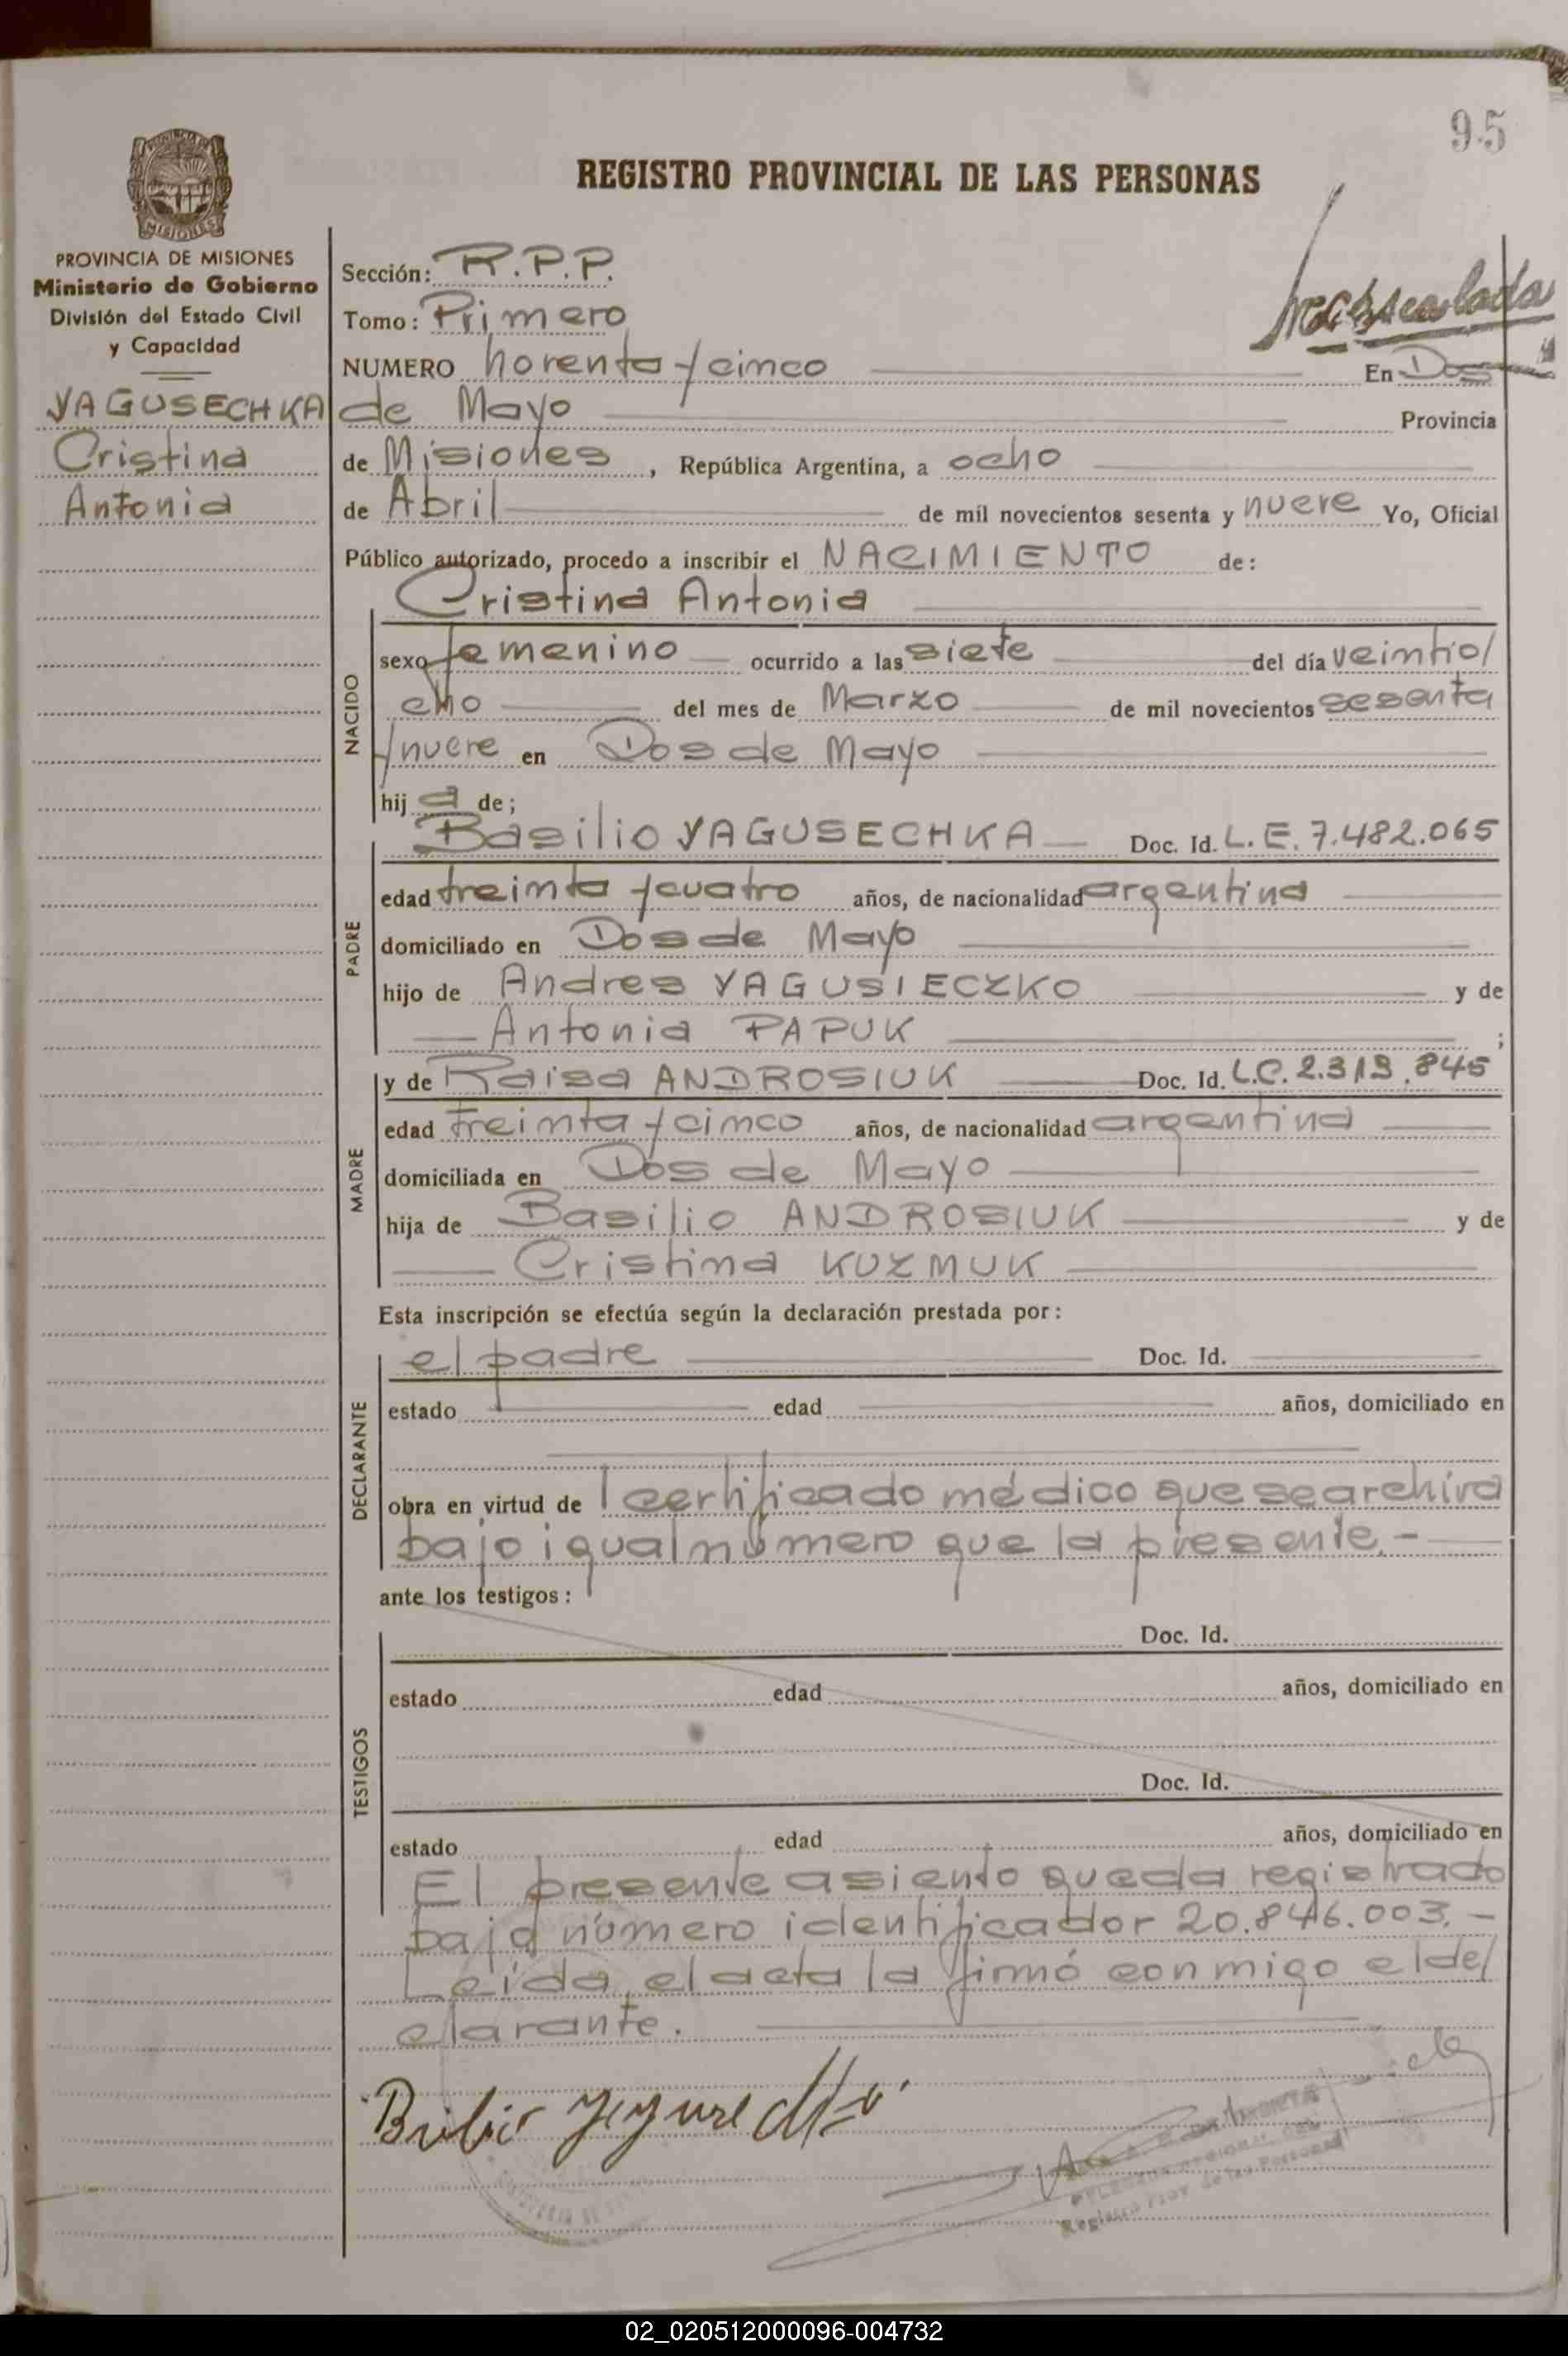 95
REGISTRO PROVINCIAL DE LAS PERSONAS
MISIONES
PROVINCIA DE MISIONES
Ministerio de Gobierno
División del Estado Civil
y Capacidad
YAGUSECHKA
Cristina
Antonia
Sección: R.P.P.
Tomo: Primero
NUMERO noventa y cinco En Dos
de Mayo Provincia
de Misiones, República Argentina, a ocho
de Abril de mil novecientos sesenta y nueve Yo, Oficial
Público autorizado, procedo a inscribir el NACIMIENTO de:
NACIDO
Cristina Antonia
sexo femenino ocurrido a las siete del día veintio/
cho del mes de Marzo de mil novecientos sesenta
y nueve en Dos de Mayo
hij a de;
PADRE
Basilio YAGUSECHKA Doc. Id. L.E. 7.482.065
edad treinta y cuatro años, de nacionalidad argentina
domiciliado en Dos de Mayo
hijo de Andres YAGUSIECZKO y de
Antonia PAPUK ;
MADRE
y de Raisa ANDROSIUK Doc. Id. L.C. 2.319.845
edad treinta y cinco años, de nacionalidad argentina
domiciliada en Dos de Mayo
hija de Basilio ANDROSIUK y de
Cristina KUZMUK
Esta inscripción se efectúa según la declaración prestada por:
DECLARANTE
el padre Doc. Id.
estado edad años, domiciliado en
obra en virtud de l certificado médico que se archiva
bajo igual número que la presente.-
ante los testigos:
TESTIGOS
Doc. Id.
estado edad años, domiciliado en
Doc. Id.
estado edad años, domiciliado en
El presente asiento queda registrado
bajo número identificador 20.846.003.-
Leída el acta la firmó conmigo el de/
clarante.
02_020512000096-004732